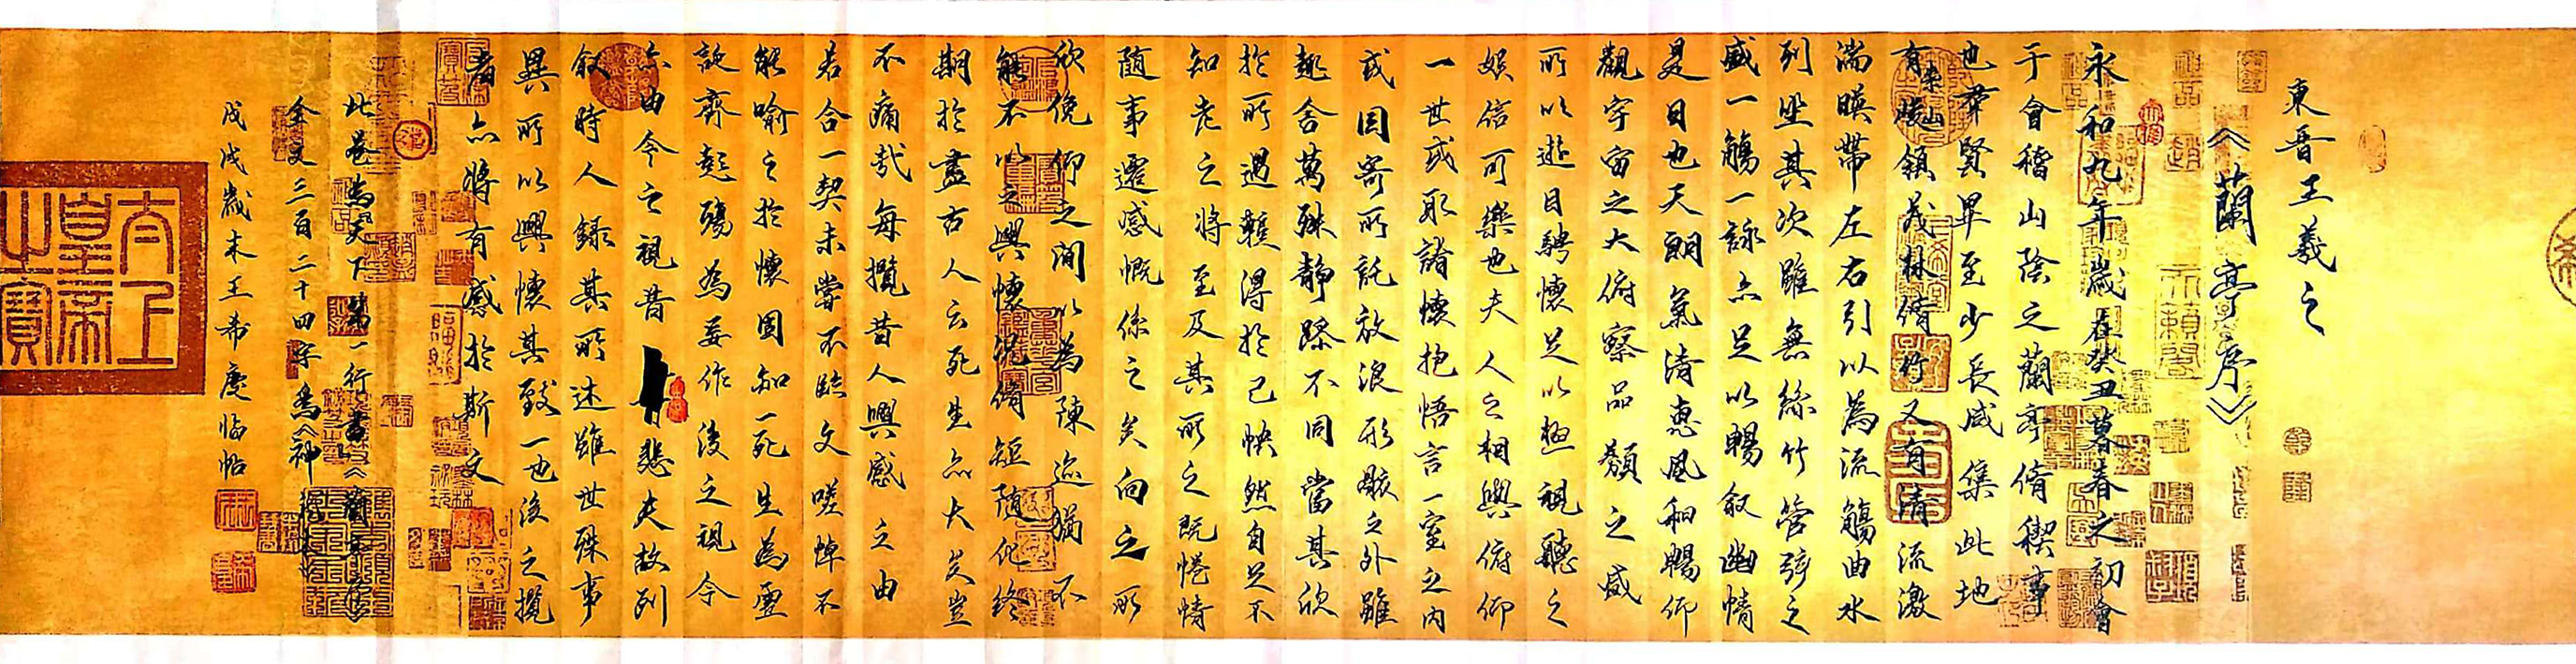 東晉王羲之
《蘭亭序》
永和九年歲在癸丑暮春之初會
于會稽山陰之蘭亭脩稧事
也群賢畢至少長咸集此地
有崇山峻領茂林脩竹又有清流激
湍暎帶左右引以為流觴曲水
列坐其次雖無絲竹管弦之
盛一觴一詠亦足以暢敘幽情
是日也天朗氣清惠風和暢仰
觀宇宙之大俯察品類之盛
所以遊目騁懷足以極視聽之
娛信可樂也夫人之相與俯仰
一世或取諸懷抱悟言一室之內
或因寄所託放浪形骸之外雖
趣舍萬殊靜躁不同當其欣
於所遇蹔得於己快然自足不
知老之將至及其所之既惓情
隨事遷感慨係之矣向之所
欣俛仰之間以為陳迹猶不
能不以之興懷況脩短隨化終
期於盡古人云死生亦大矣豈
不痛哉每攬昔人興感之由
若合一契未嘗不臨文嗟悼不
能喻之於懷固知一死生為虛
誕齊彭殤為妄作後之視今
亦由今之視昔悲夫故列
敘時人錄其所述雖世殊事
異所以興懷其致一也後之攬
者亦將有感於斯文
此卷為天下第一行書《蘭亭序》
全文三百二十四字為《神
戊戌歲末王希慶臨帖
太上
皇帝
之寶